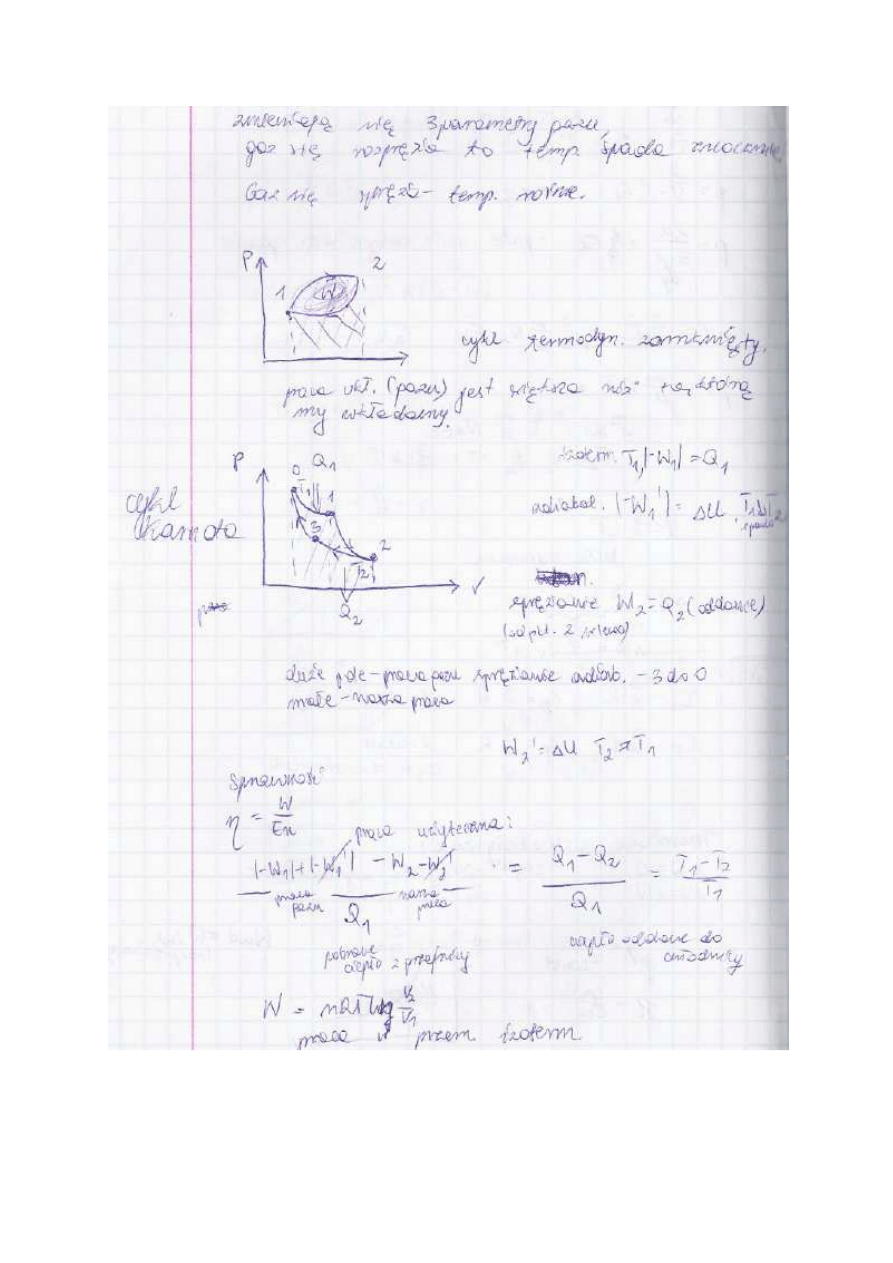 zmieniają się 3 parametry gazu,
gaz się rozpręża to temp. spada znacznie
Gaz się spręża - temp. rośnie.
P
2
1
W
cykl termodyn. zamknięty.
praca ukł. (gazu) jest większa niż tą, którą
my wkładamy.
P
0 Q1
T1
1
3
2
T2
V
Q2
cykl
Karnota
izoterm. T1, |-W1| = Q1
adiabat. |-W1'| = ΔU, T1 T2
spada
sprężanie W2 = Q2 (oddane)
duże pole - praca gazu sprężanie adiab. - 3 do 0
małe - nasza praca
W2' = ΔU T2 T1
Sprawność
η = W/En
praca użyteczna:
|-W1|+|-W1'| - W2 - W2' / Q1 = Q1 - Q2 / Q1 = T1 - T2 / T1
praca gazu nasza praca
pobrane
ciepło z grzejnicy
ciepło oddane do
chłodnicy
praca w przem. izoterm